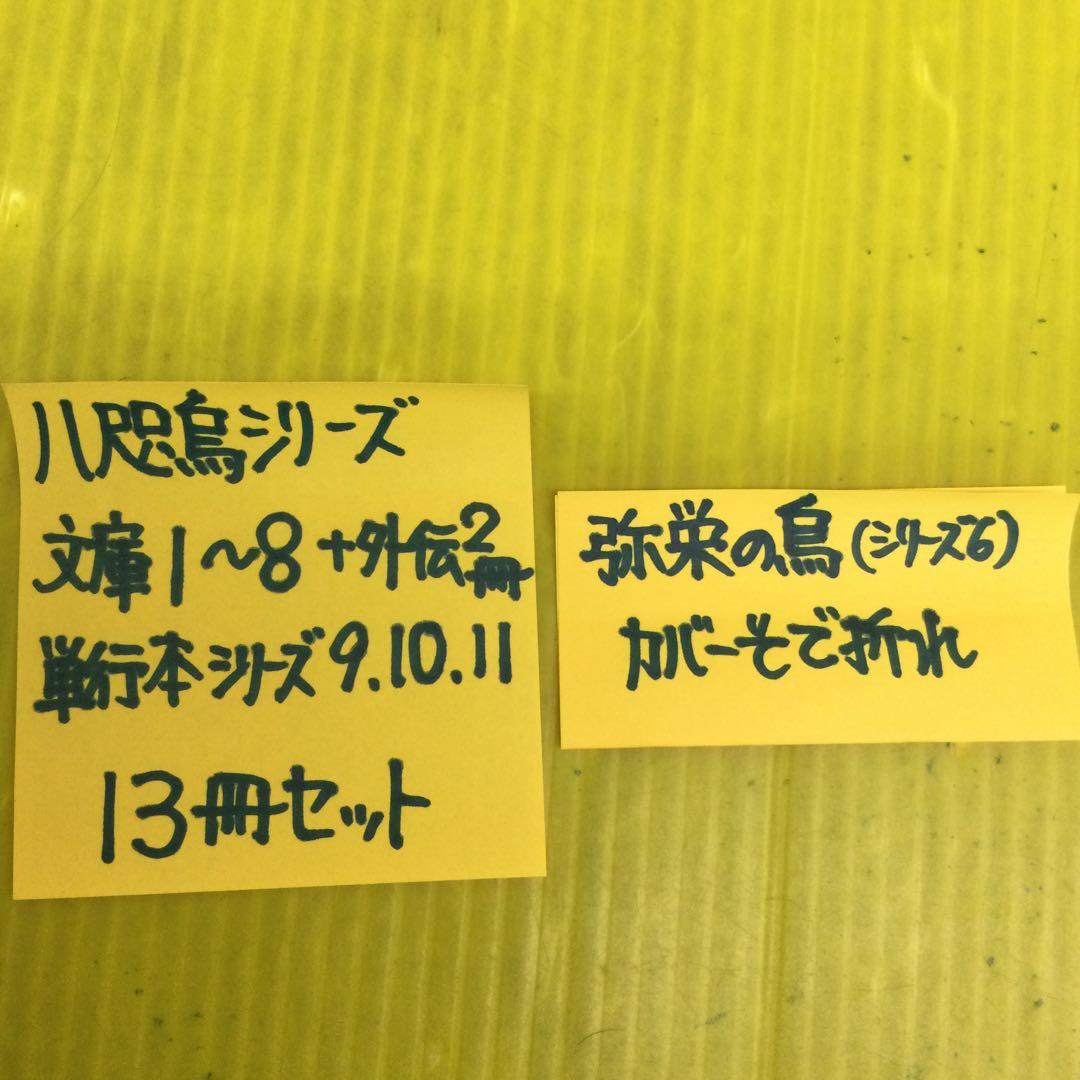 八咫烏シリーズ
文庫1〜8+外伝2冊
単行本シリーズ9.10.11
13冊セット
弥栄の烏(シリーズ6)
カバーそで折れ